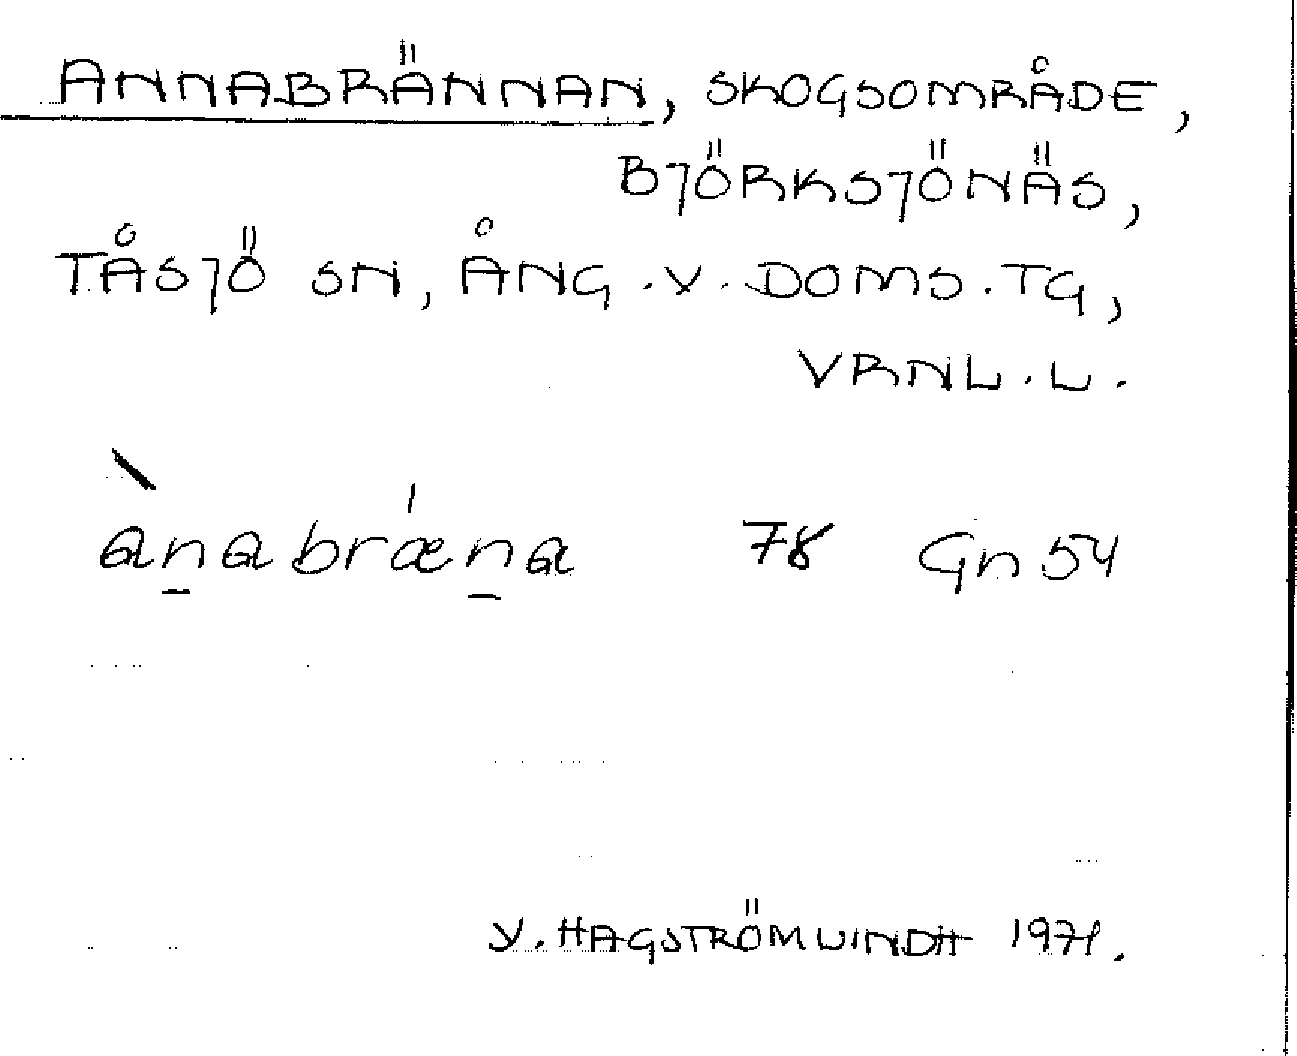 ANNABRÄNNAN, SKOGSOMRÅDE,
BJÖRKSJÖNÄS,
TÅSJÖ SN, ÅNG.V.DOMS.TG,
VRNL.L.
àn̲abrǽn̲a 78 Gn 54
Y. HAGSTRÖM LINDH 1971.